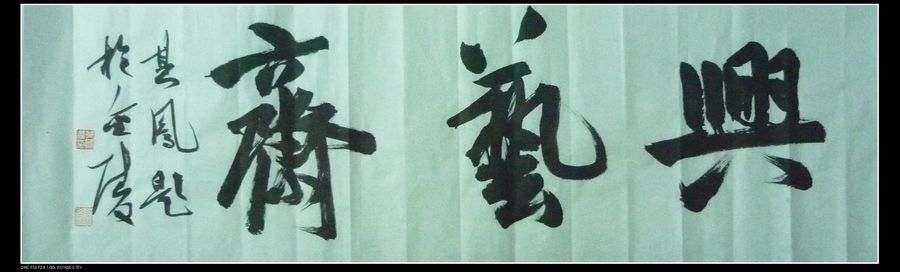 興藝齋
其鳳題
於金陵